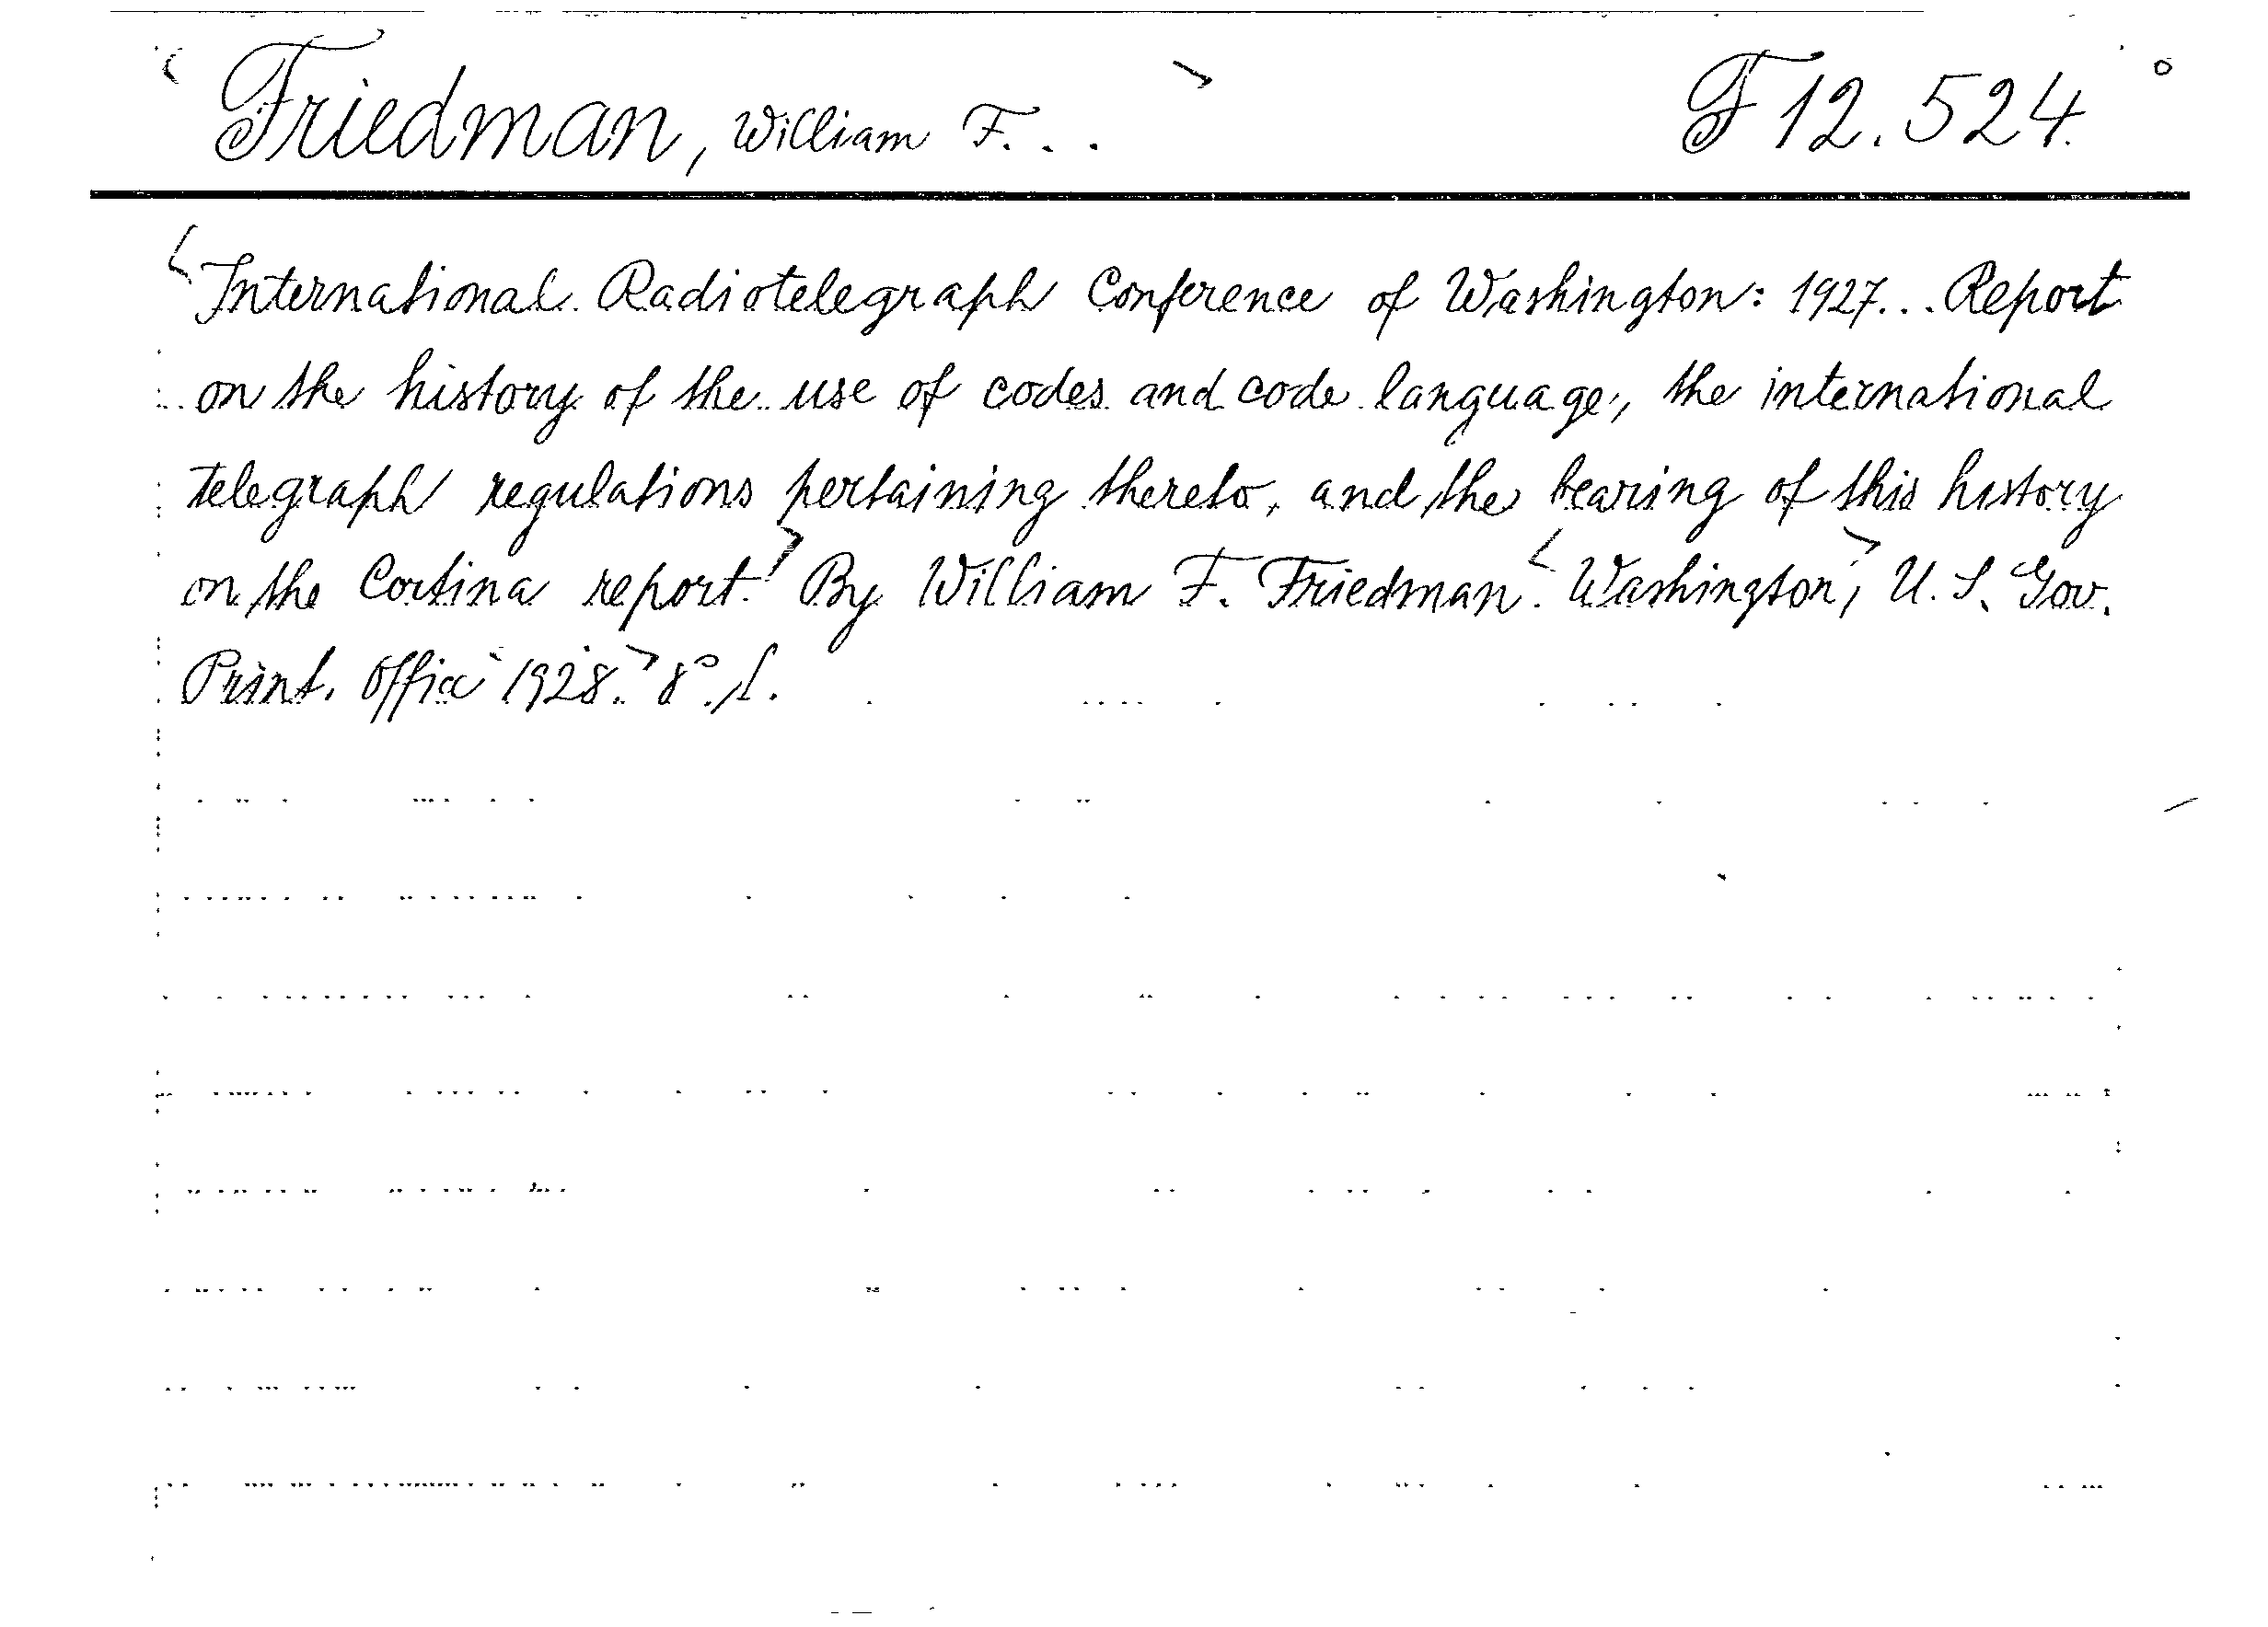 < Friedman, William F. . . > F 12.524. °
< International Radiotelegraph Conference of Washington: 1927... Report
on the history of the use of codes and code language, the international
telegraph regulations pertaining thereto, and the bearing of this history
on the Cortina report. > By William F. Friedman. < Washington, > U. S. Gov.
Print. Office 1928. > 8°.